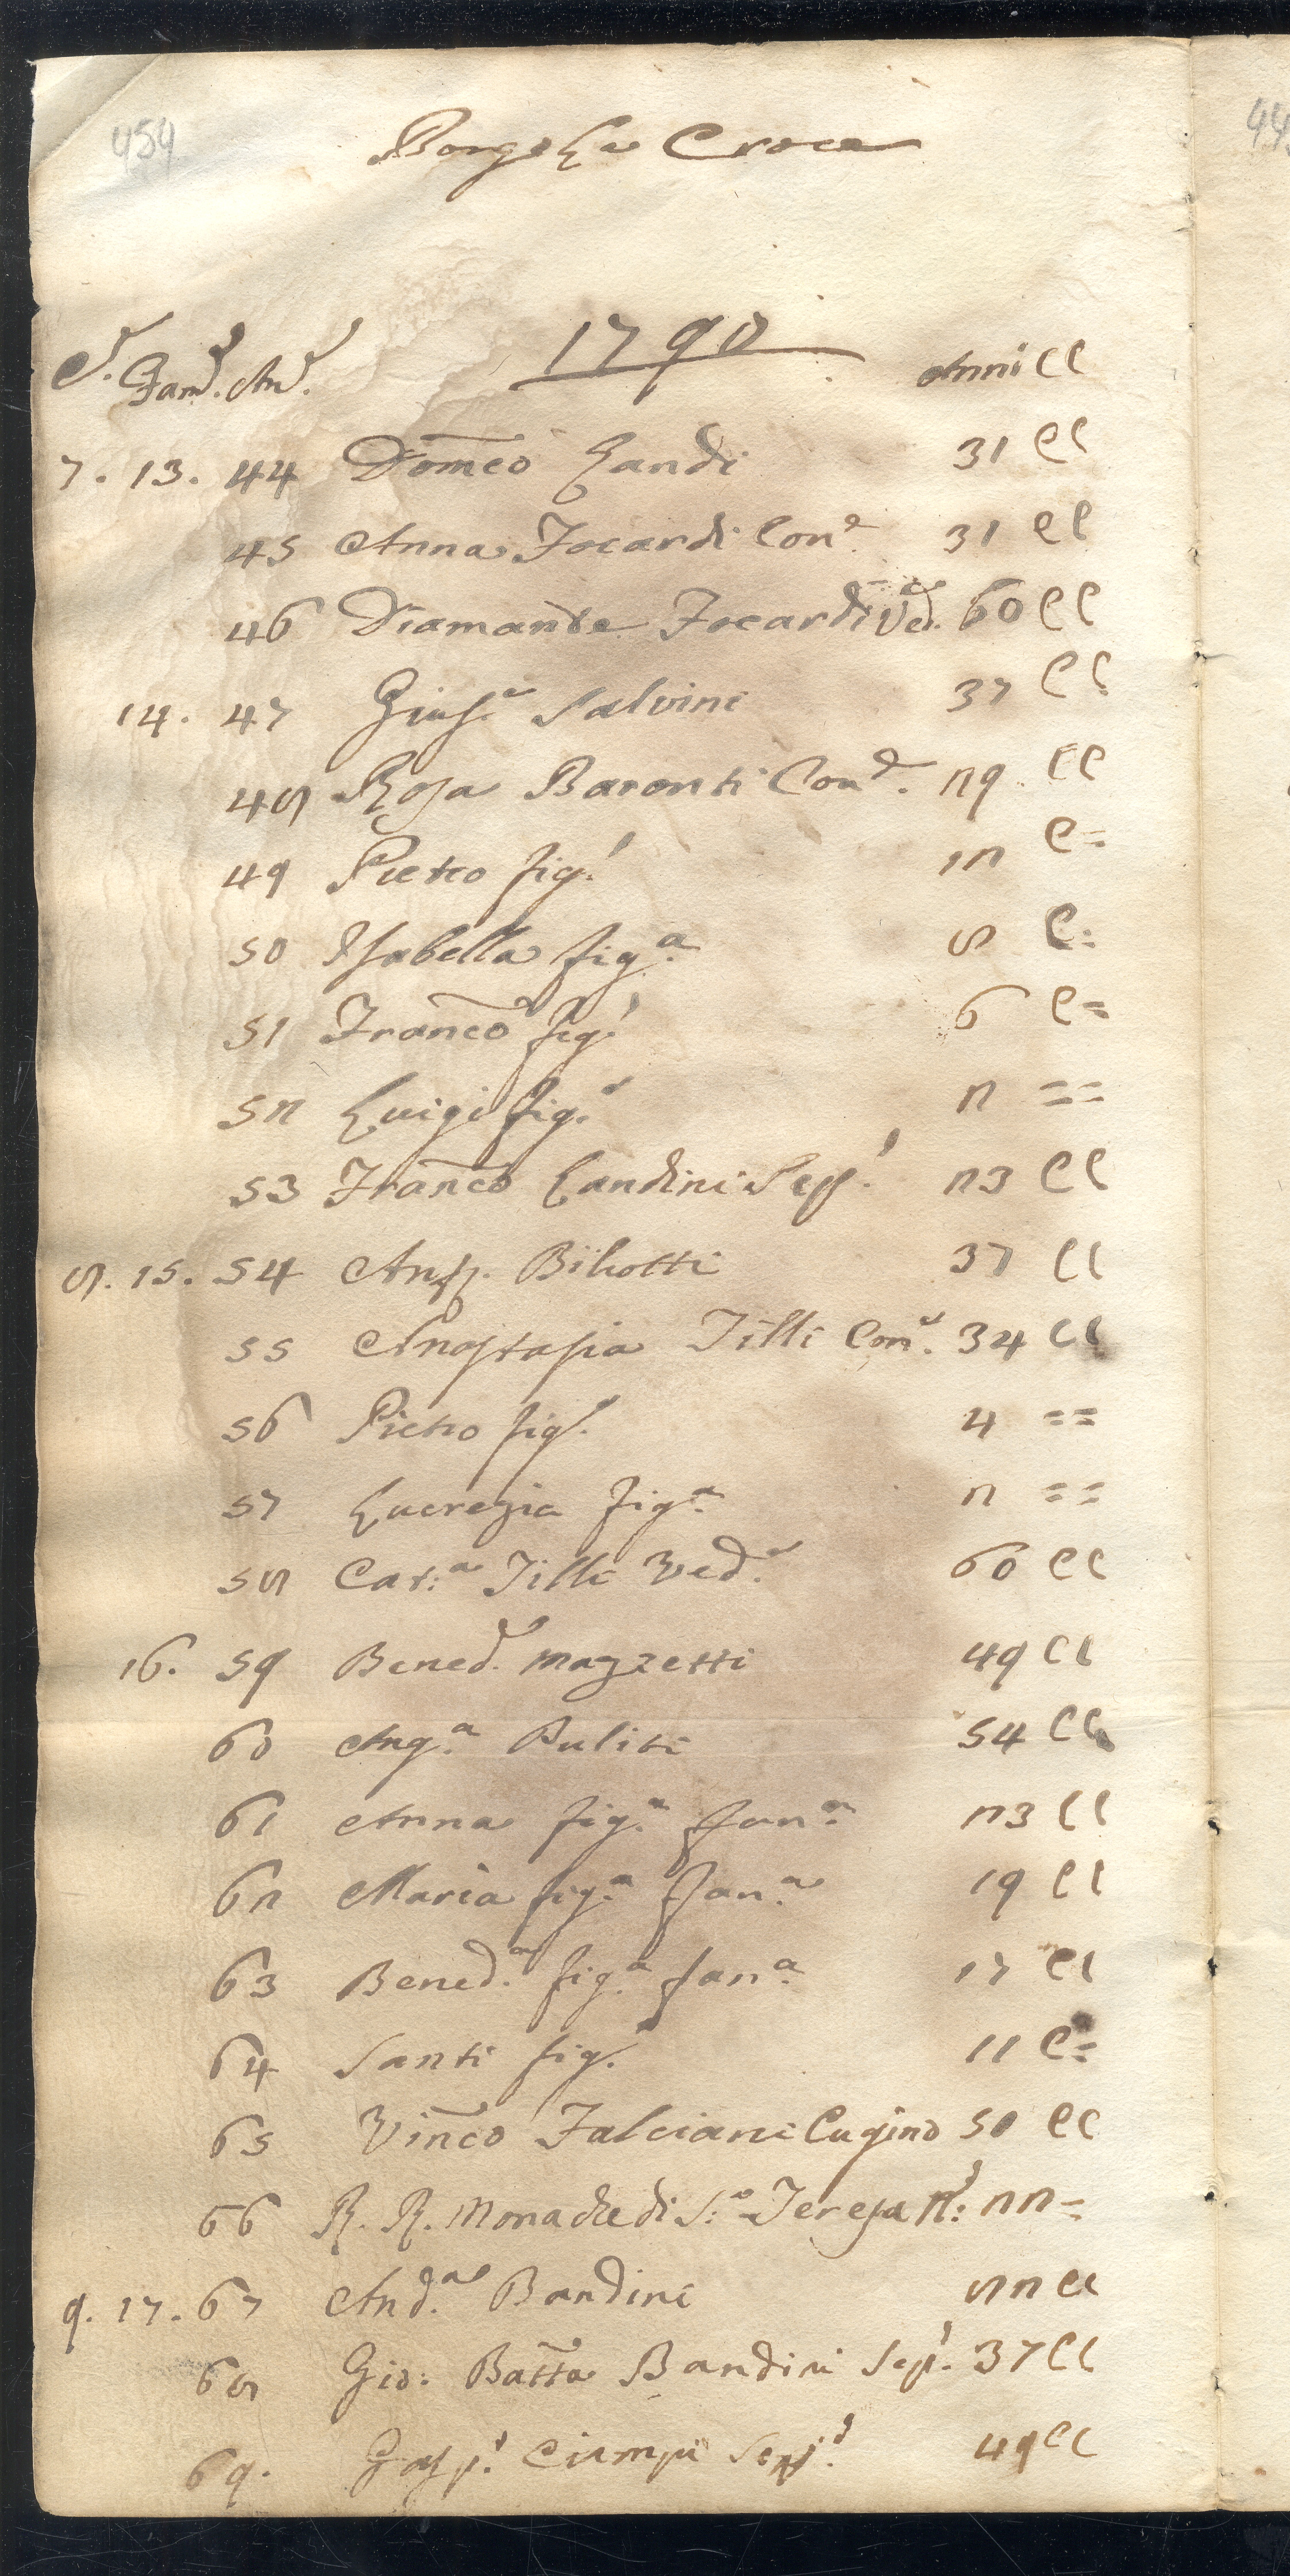 454
Borgo La Croce
44
1790
C. Fam. An. Anni CC
7. 13. 44 Domco Landi 31 CC
45 Anna Focardi Con.e 31 CC
46 Diamante Focardi Ved.a 60 CC
14. 47 Gius.e Salvini 37 CC
48 Rosa Baronti Con.e 29 CC
49 Pietro fig.o 12 C=
50 Isabella fig.a 8 C=
51 Franco fig.o 6 C=
52 Luigi fig.o 2 ==
53 Franco Landini 23 CC
8. 15. 54 Biliotti 37 CC
55 Anastasia Tilli Con.e 34 CC
56 Pietro fig.o 4 ==
57 Lucrezia fig.a 2 ==
58 Cat:a Tilli Ved.a 60 CC
16. 59 Bened.o Mazzetti 49 CC
60 Ang.a Puliti 54 CC
61 Anna fig.a fan.a 23 CC
62 Maria fig.a fan.a 19 CC
63 Bened.a fig.a fan.a 17 CC
64 Santi fig.o 11 C=
65 Vinco Falciani Cugino 50 CC
66 R. R. Monache di S.a Teresa N.o: 22=
9. 17. 67 And.a Bandini 82 CC
68 Gio: Batta Bandini 37 CC
69. Gasp.o Ciampi 49 CC